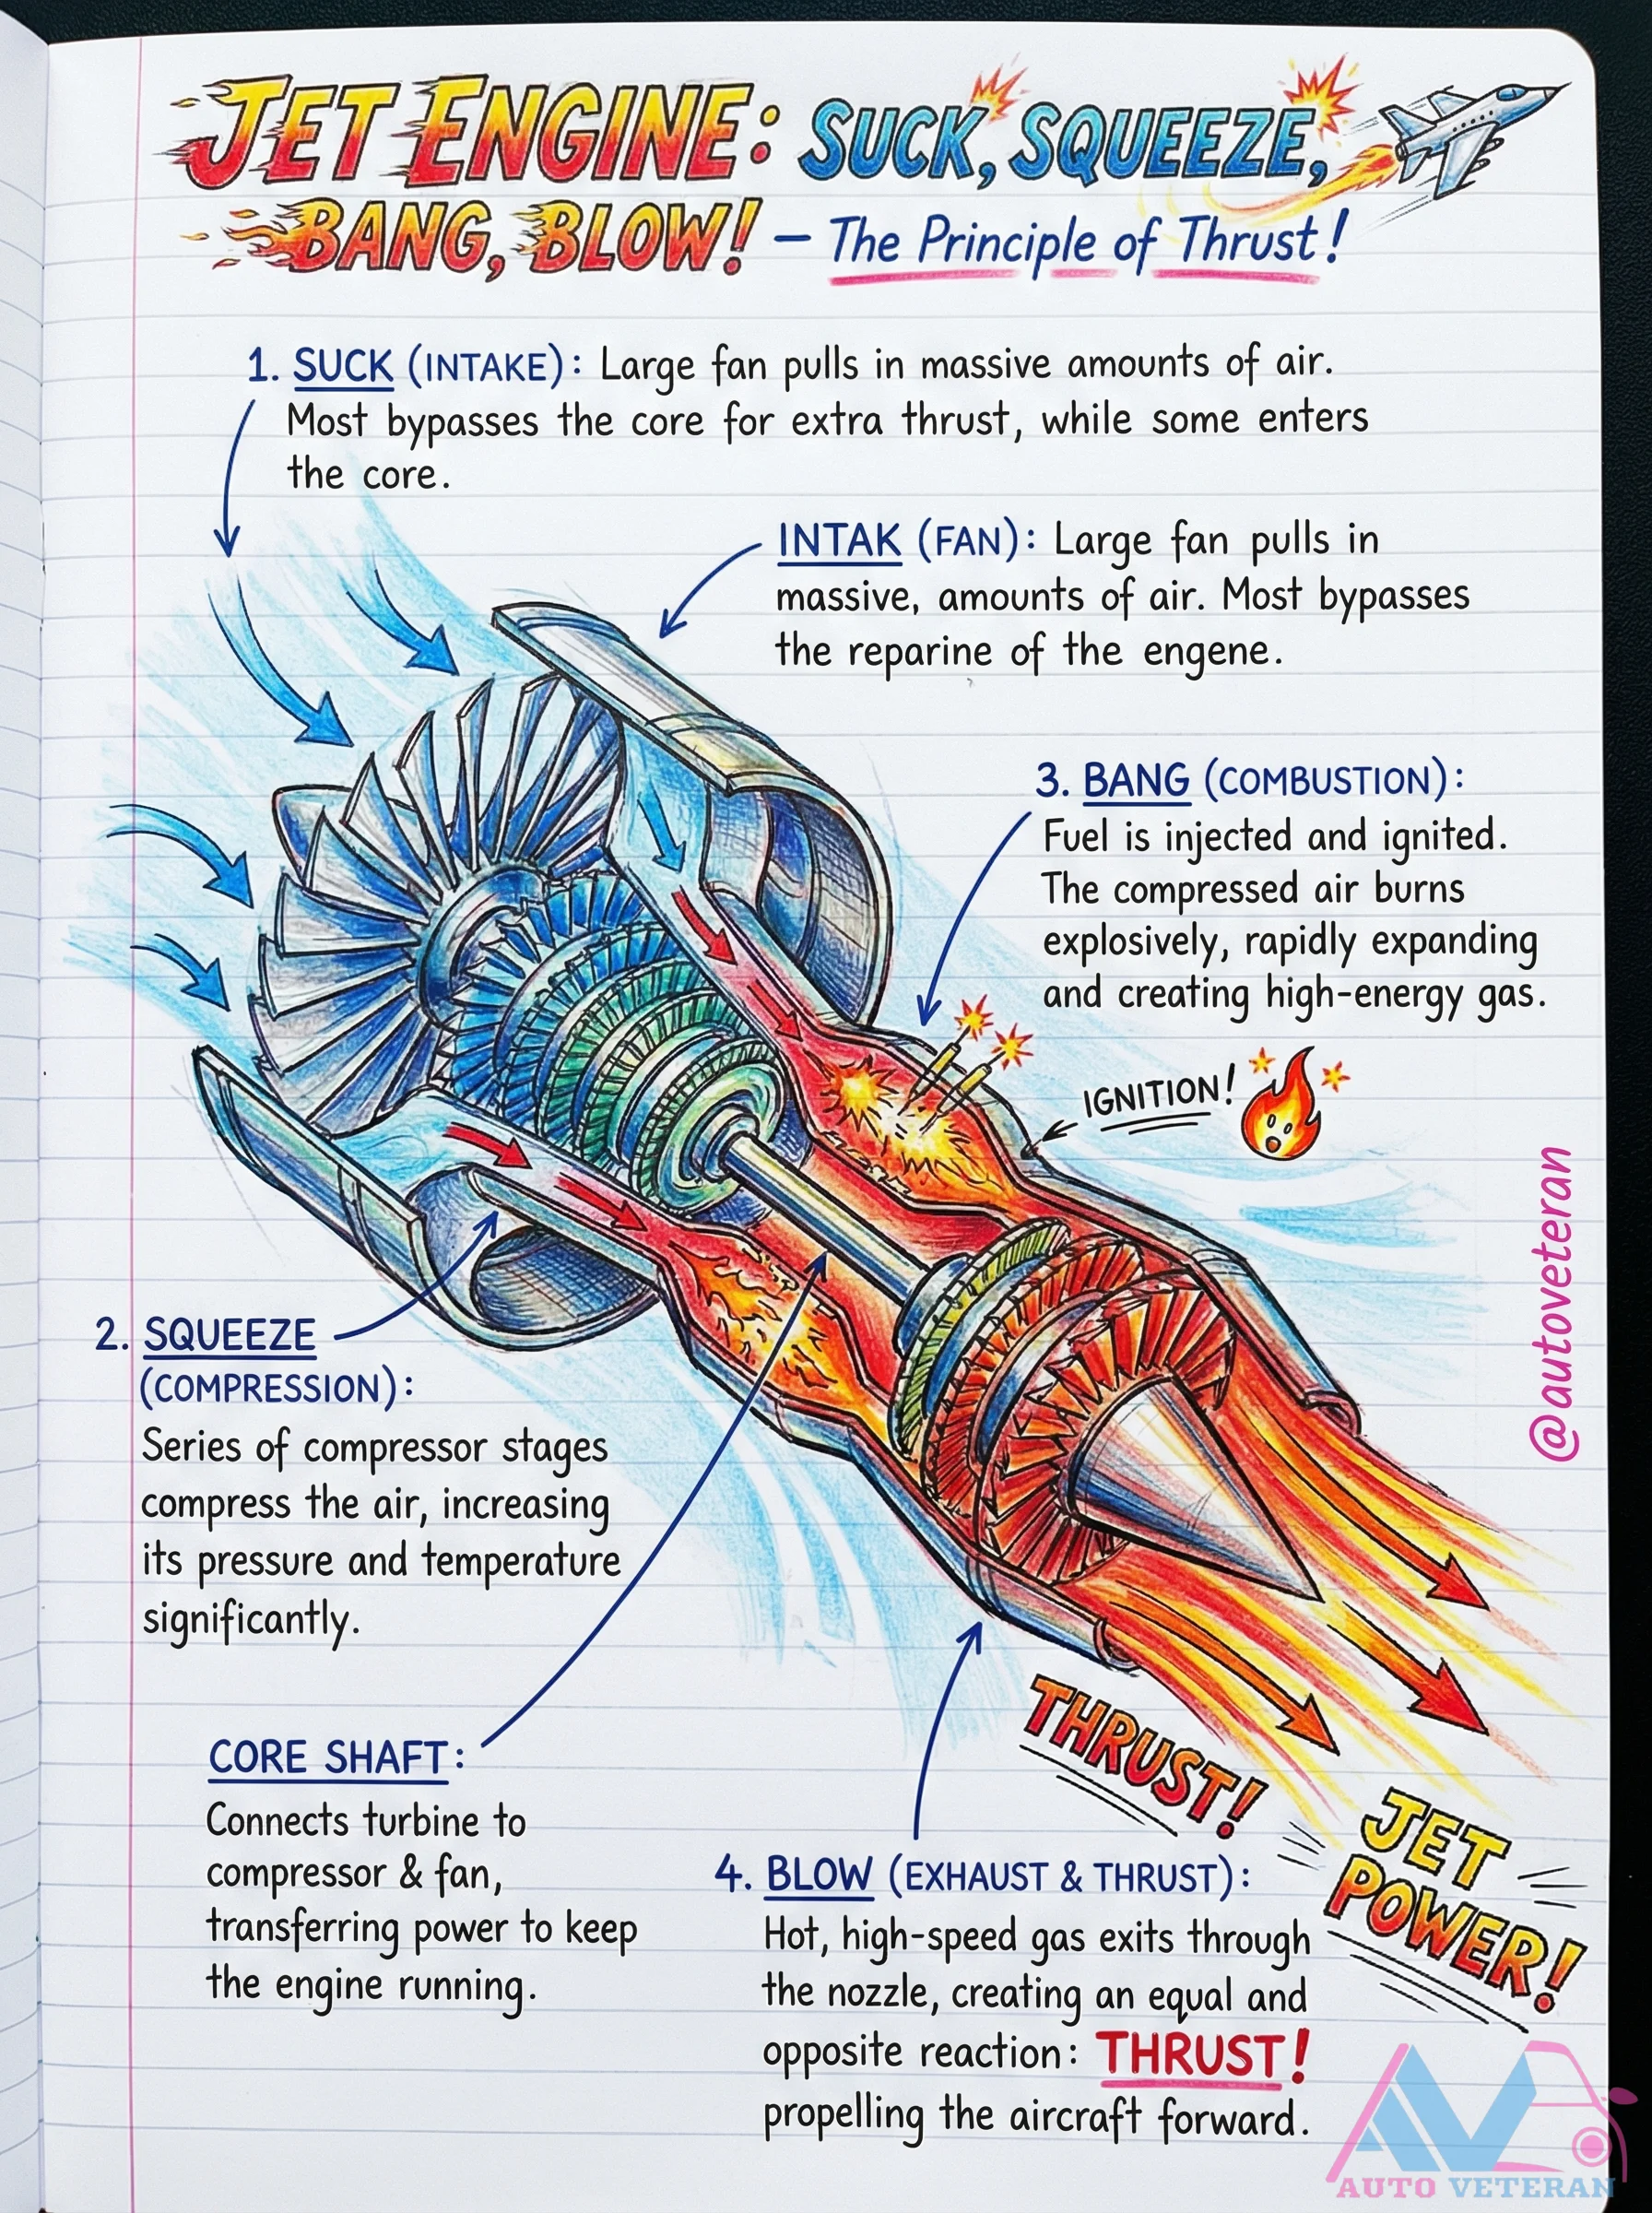 JET ENGINE: SUCK, SQUEEZE,
BANG, BLOW! – The Principle of Thrust!
1. SUCK (INTAKE): Large fan pulls in massive amounts of air.
Most bypasses the core for extra thrust, while some enters
the core.
INTAK (FAN): Large fan pulls in
massive, amounts of air. Most bypasses
the reparine of the engene.
3. BANG (COMBUSTION):
Fuel is injected and ignited.
The compressed air burns
explosively, rapidly expanding
and creating high-energy gas.
IGNITION!
@autoveteran
2. SQUEEZE
(COMPRESSION):
Series of compressor stages
compress the air, increasing
its pressure and temperature
significantly.
CORE SHAFT:
Connects turbine to
compressor & fan,
transferring power to keep
the engine running.
THRUST!
JET
POWER!
4. BLOW (EXHAUST & THRUST):
Hot, high-speed gas exits through
the nozzle, creating an equal and
opposite reaction: THRUST!
propelling the aircraft forward.
AV
AUTO VETERAN